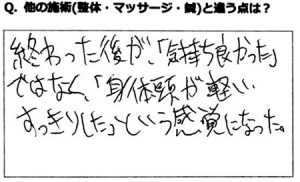 Q. 他の施術(整体・マッサージ・鍼)と違う点は?
終わった後が、「気持ち良かった」
ではなく、「身体頭が軽い
すっきりした」という感覚になった。